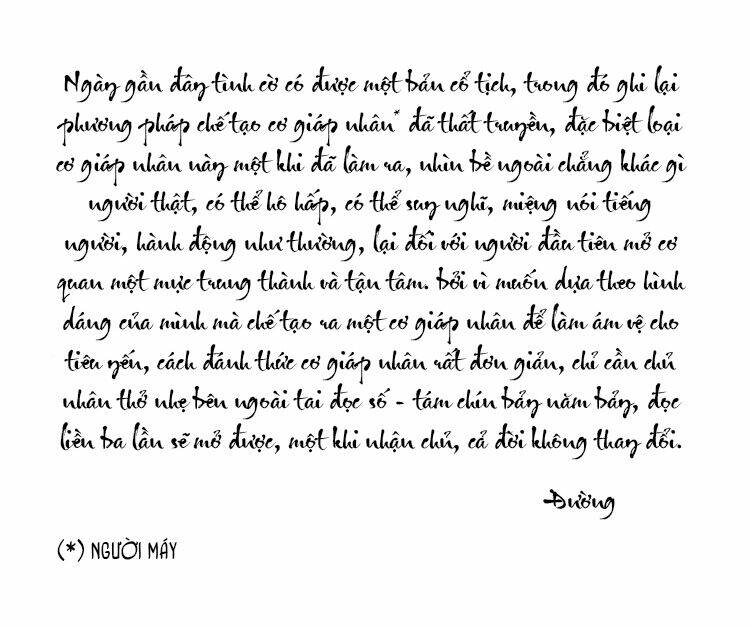 Ngày gần đây tình cờ có được một bản cổ tịch, trong đó ghi lại
phương pháp chế tạo cơ giáp nhân* đã thất truyền, đặc biệt loại
cơ giáp nhân này một khi đã làm ra, nhìn bề ngoài chẳng khác gì
người thật, có thể hô hấp, có thể suy nghĩ, miệng nói tiếng
người, hành động như thường, lại đối với người đầu tiên mở cơ
quan một mực trung thành và tận tâm. Bởi vì muốn dựa theo hình
dáng của mình mà chế tạo ra một cơ giáp nhân để làm ám vệ cho
tiêu yến, cách đánh thức cơ giáp nhân rất đơn giản, chỉ cần chủ
nhân thở nhẹ bên ngoài tai đọc số - tám chín bảy năm bảy, đọc
liền ba lần sẽ mở được, một khi nhận chủ, cả đời không thay đổi.
Đường
(*) NGƯỜI MÁY